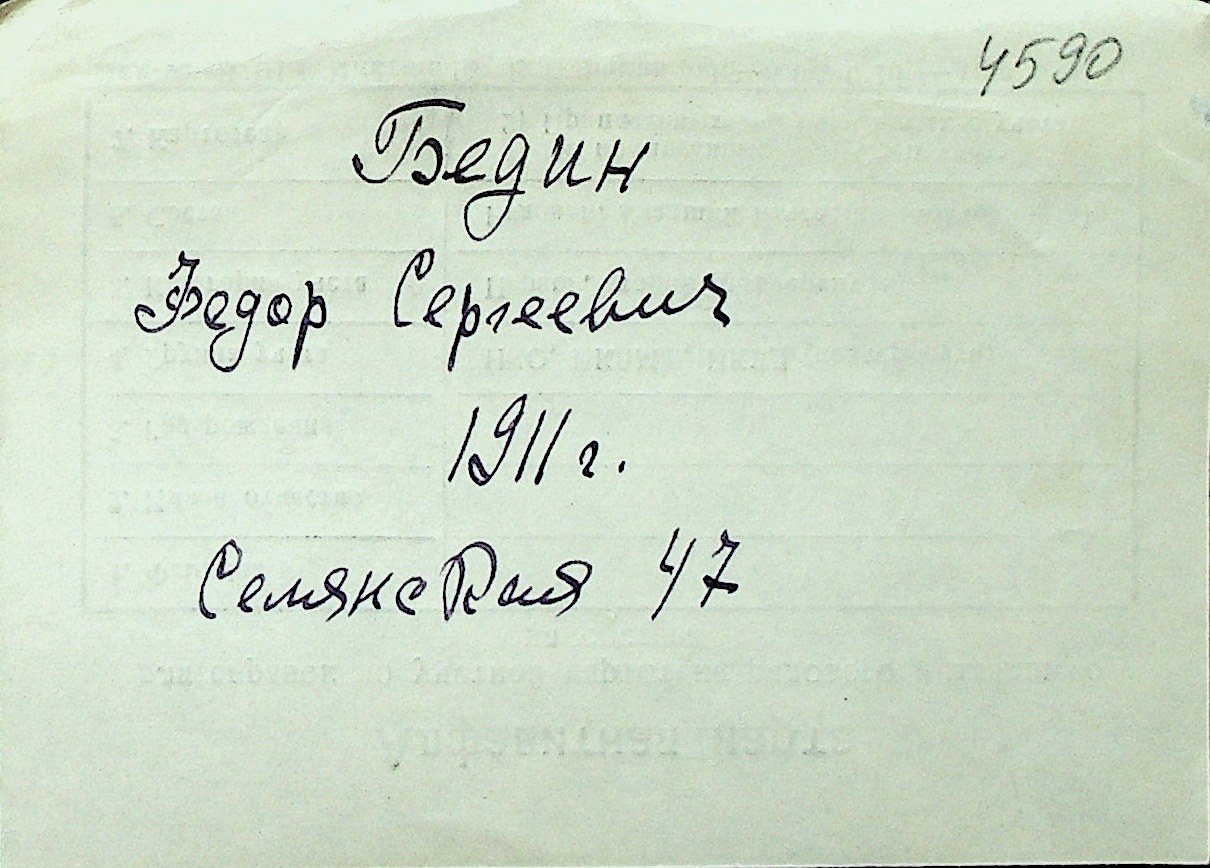 4590
Бедин
Федор Сергеевич
1911 г.
Семянская 47